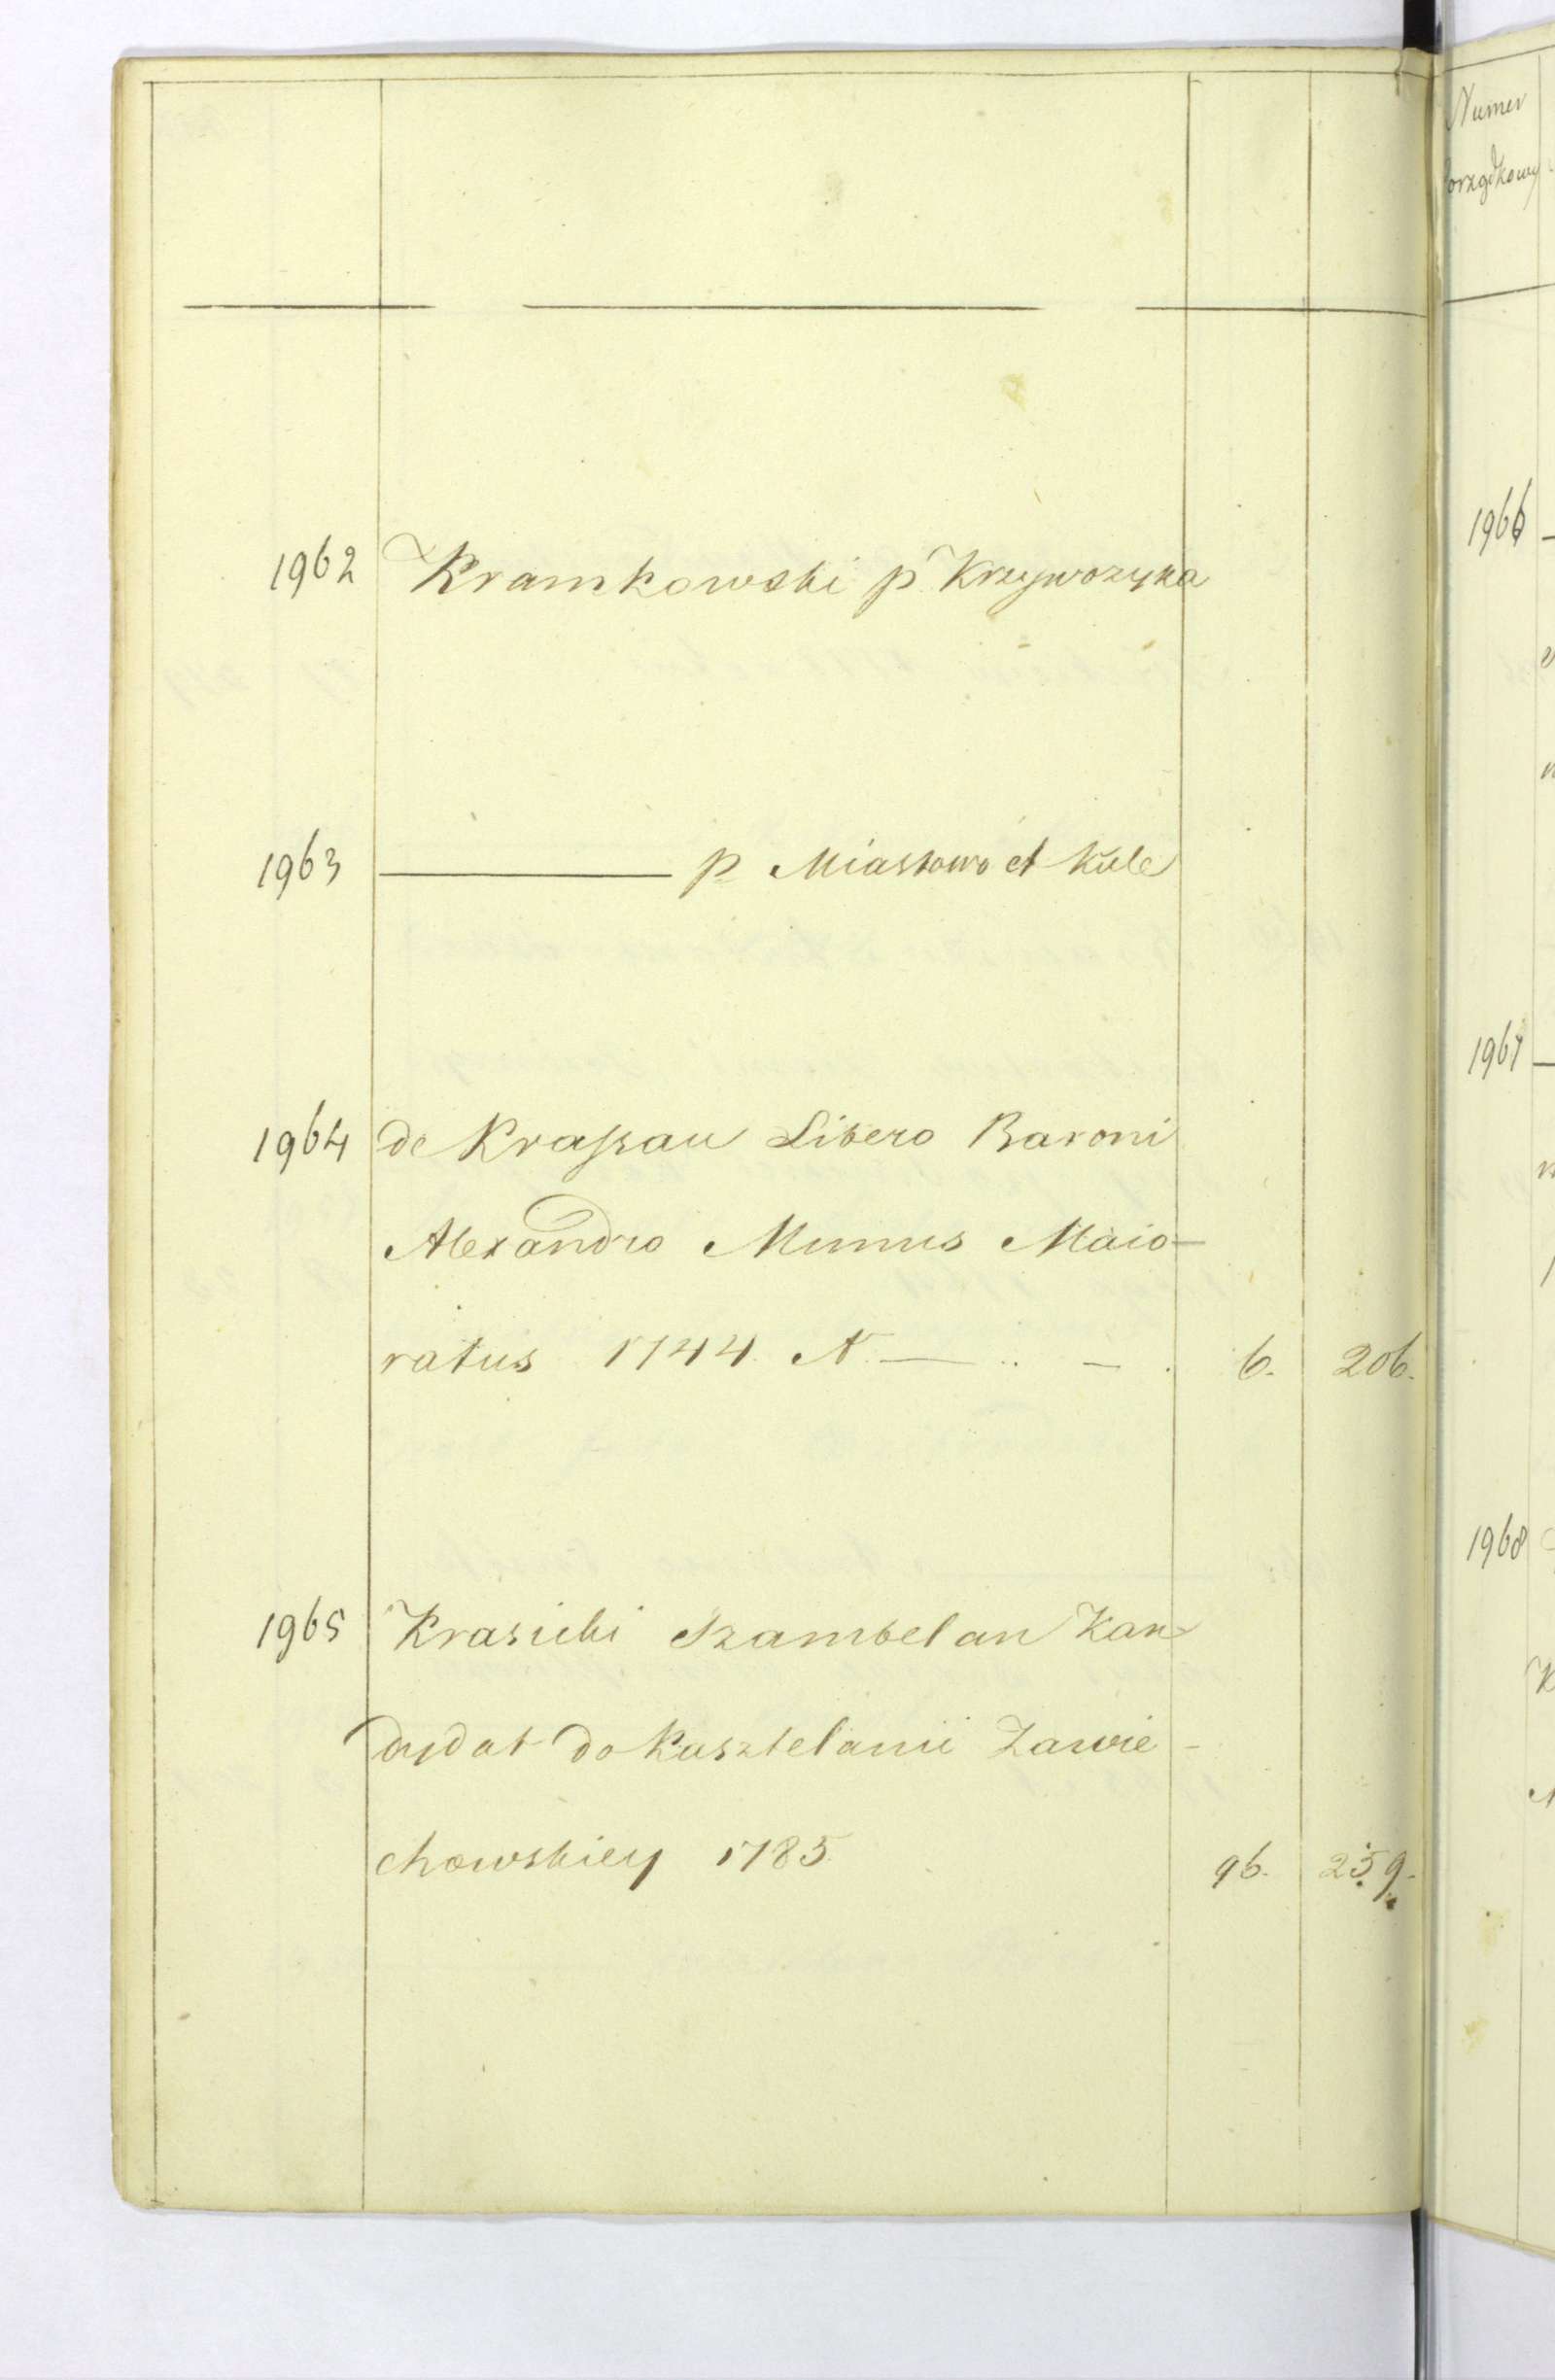 1962 Kramkowski p Krzywozyka
1963 ——— p Miastowo et Kule
1964 de Krassau Libero Baroni
Alexandro Munus Maio-
ratus 1744. N. — .. — . 6. 206.
1965 Krasicki Szambelan Kan-
dydat do Kasztelanii Zawie-
chowskiey 1785. 96. 259.
Numer
Porządkowy
1966
1967
1968